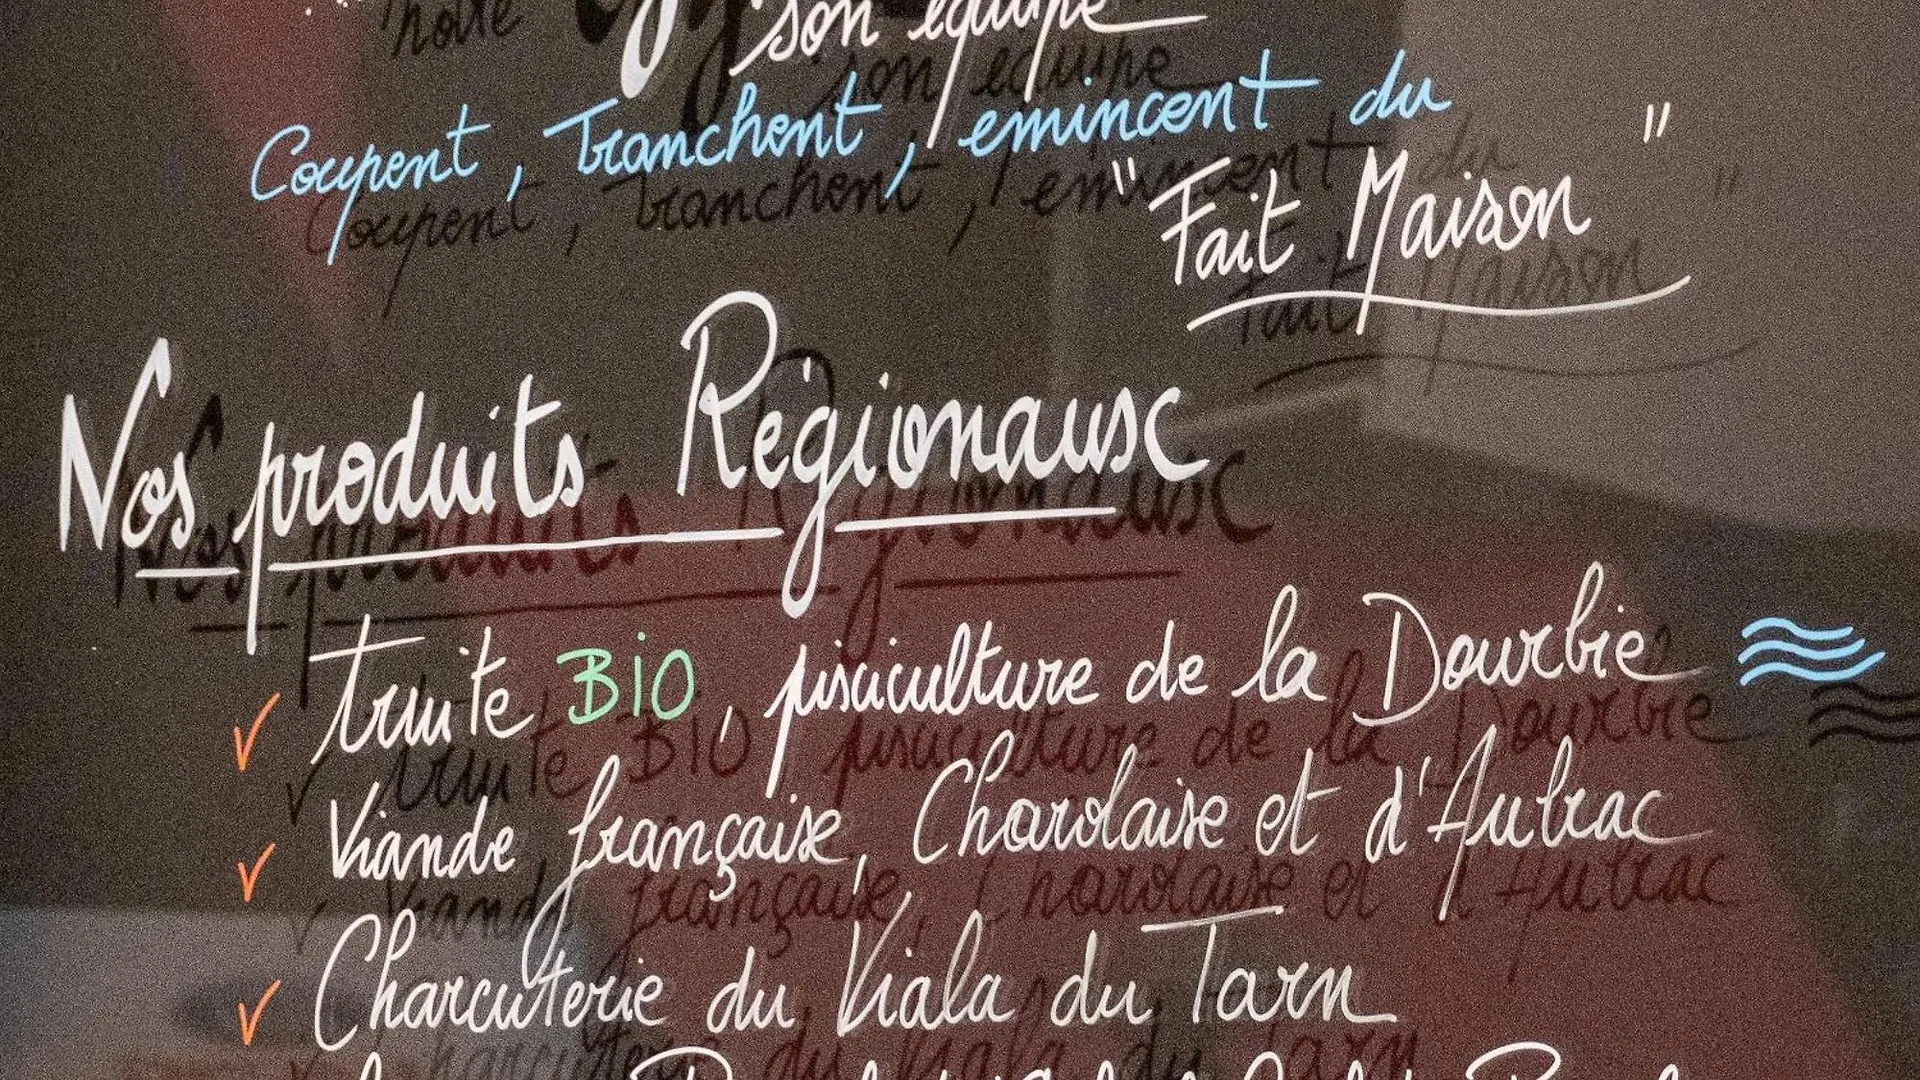 son équipe
Coupent, tranchent, emincent du
"Fait Maison"
Nos produits Régionaux
truite BIO, pisciculture de la Dourbie
Viande française, Charolaise et d'Aubrac
Charcuterie du Viala du Tarn